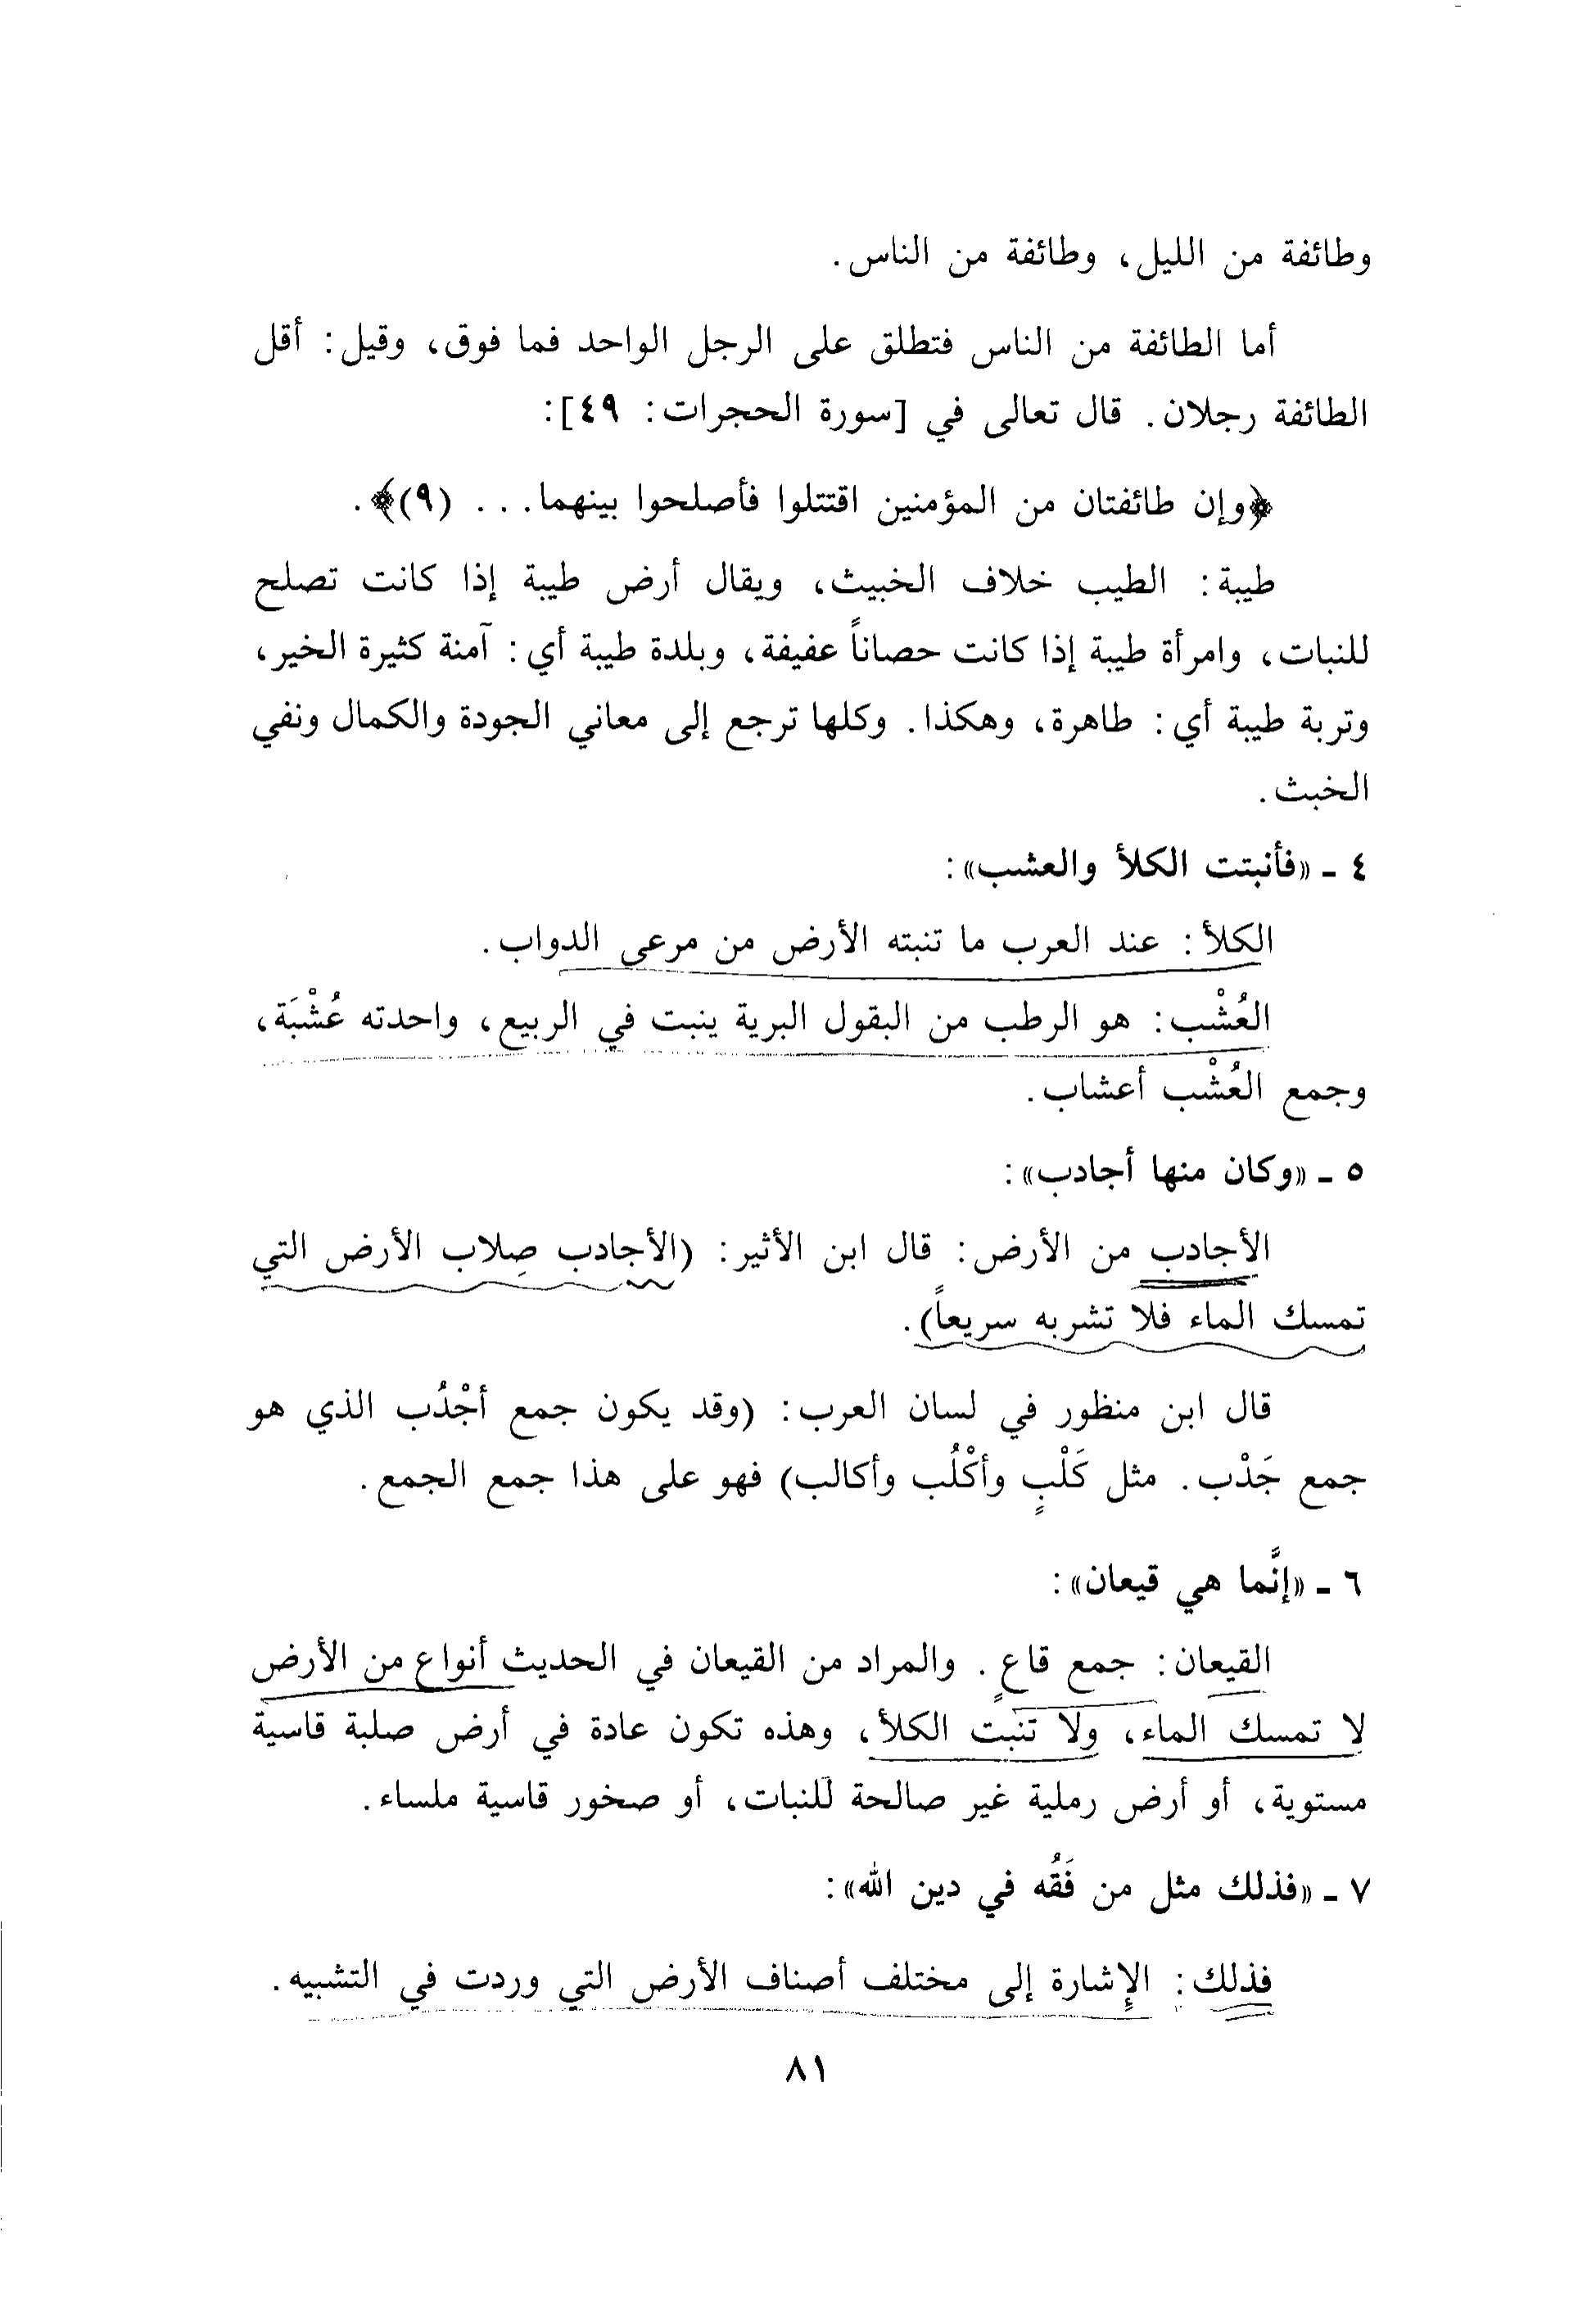 وطائفة من الليل، وطائفة من الناس.
أما الطائفة من الناس فتطلق على الرجل الواحد فما فوق، وقيل: أقل
الطائفة رجلان. قال تعالى في [سورة الحجرات: ٤٩]:
﴿وإن طائفتان من المؤمنين اقتتلوا فأصلحوا بينهما... (٩)﴾.
طيبة: الطيب خلاف الخبيث، ويقال أرض طيبة إذا كانت تصلح
للنبات، وامرأة طيبة إذا كانت حصاناً عفيفة، وبلدة طيبة أي: آمنة كثيرة الخير،
وتربة طيبة أي: طاهرة، وهكذا. وكلها ترجع إلى معاني الجودة والكمال ونفي
الخبث.
٤ - «فأنبتت الكلأ والعشب»:
الكلأ: عند العرب ما تنبته الأرض من مرعى الدواب.
العُشْب: هو الرطب من البقول البرية ينبت في الربيع، واحدته عُشْبَة،
وجمع العُشْب أعشاب.
٥ - «وكان منها أجادب»:
الأجادب من الأرض: قال ابن الأثير: (الأجادب صِلاب الأرض التي
تمسك الماء فلا تشربه سريعاً).
قال ابن منظور في لسان العرب: (وقد يكون جمع أجْدُب الذي هو
جمع جَدْب. مثل كَلْبٍ وأكْلُب وأكالب) فهو على هذا جمع الجمع.
٦ - «إنَّما هي قيعان»:
القيعان: جمع قاعٍ. والمراد من القيعان في الحديث أنواع من الأرض
لا تمسك الماء، ولا تنبت الكلأ، وهذه تكون عادة في أرض صلبة قاسية
مستوية، أو أرض رملية غير صالحة للنبات، أو صخور قاسية ملساء.
٧ - «فذلك مثل من فَقُه في دين الله»:
فذلك: الإشارة إلى مختلف أصناف الأرض التي وردت في التشبيه.
٨١